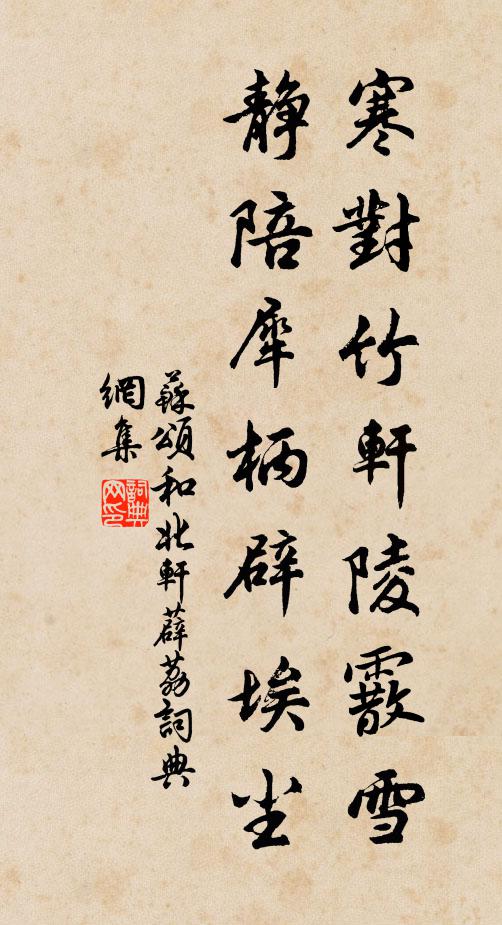 寒對竹軒陵霰雪
静陪犀柄辟埃尘
蘇頌和北軒薜荔詞典
網集
詞典
网印